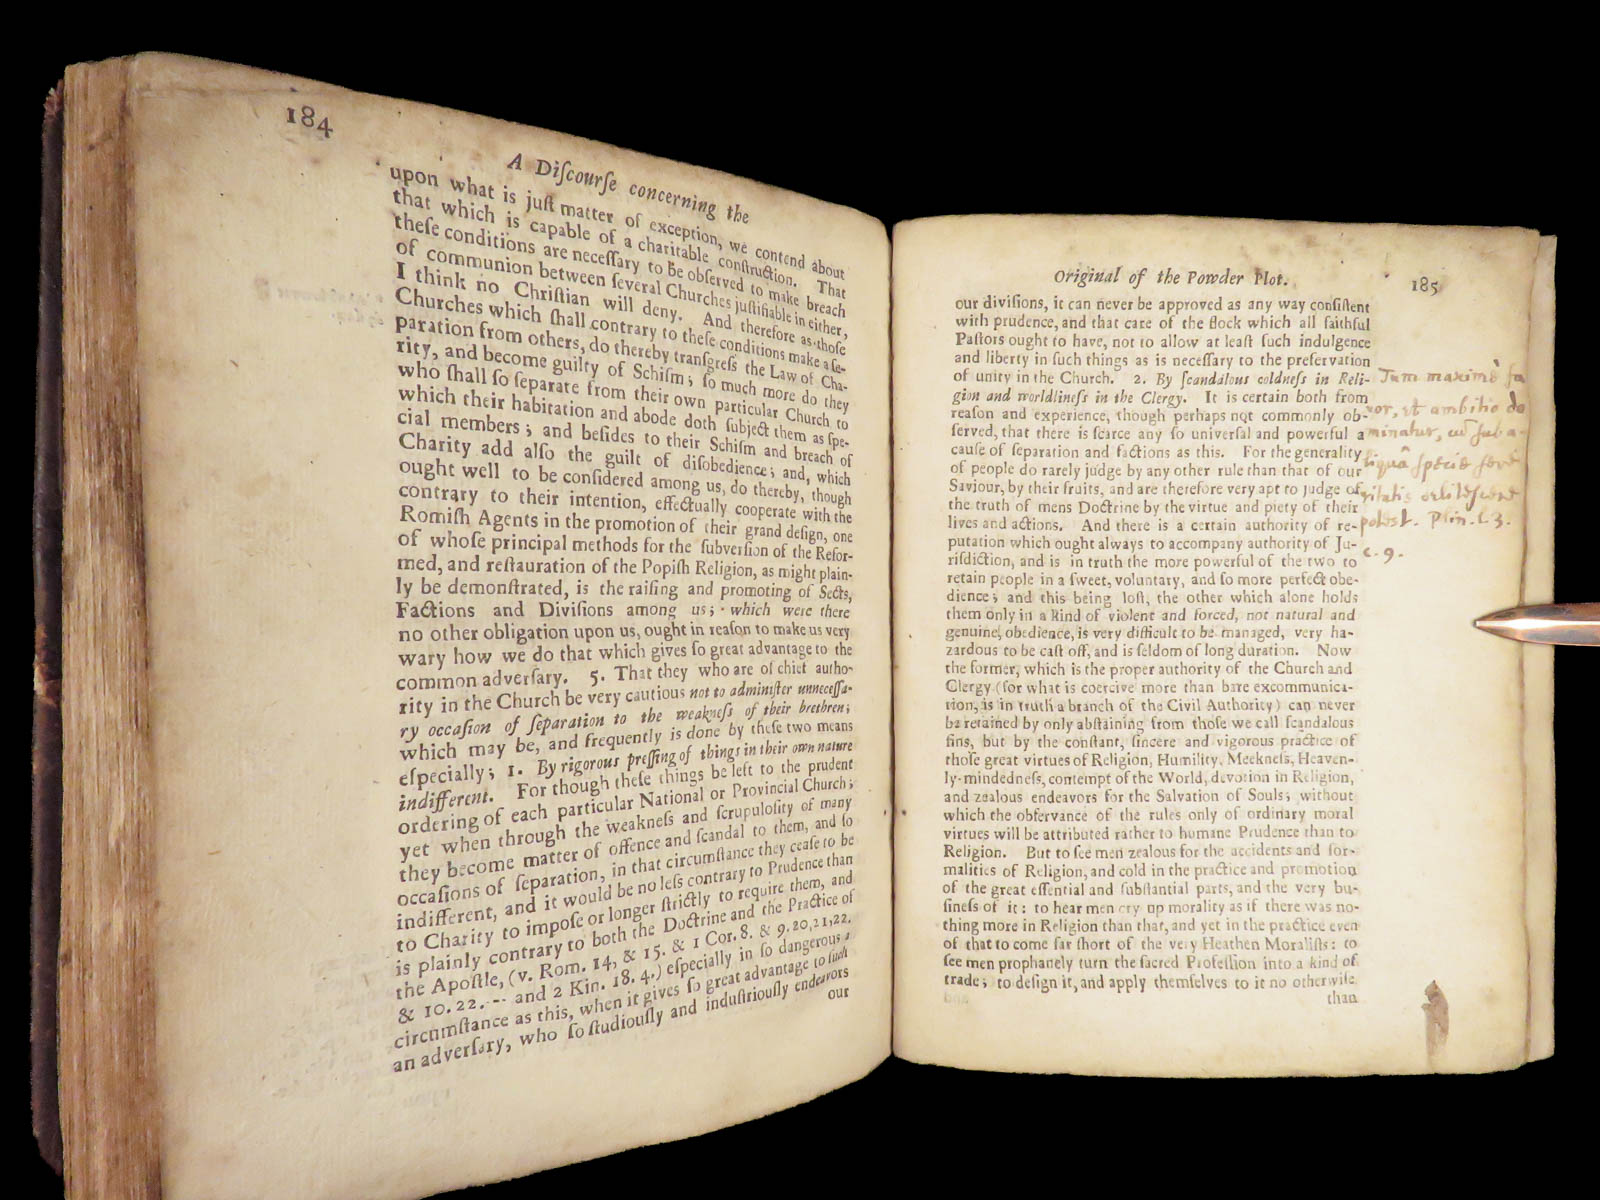 184
A Diſcourſe concerning the
upon what is juſt matter of exception, we contend about
that which is capable of a charitable conſtruction. That
theſe conditions are neceſſary to be obſerved to make breach
of communion between ſeveral Churches juſtifiable in either,
I think no Chriſtian will deny. And therefore as thoſe
Churches which ſhall contrary to theſe conditions make a ſe-
paration from others, do thereby tranſgreſs the Law of Cha-
rity, and become guilty of Schiſm; ſo much more do they
who ſhall ſo ſeparate from their own particular Church to
which their habitation and abode doth ſubject them as ſpe-
cial members; and beſides to their Schiſm and breach of
Charity add alſo the guilt of diſobedience; and, which
ought well to be conſidered among us, do thereby, though
contrary to their intention, effectually cooperate with the
Romiſh Agents in the promotion of their grand deſign, one
of whoſe principal methods for the ſubverſion of the Refor-
med, and reſtauration of the Popiſh Religion, as might plain-
ly be demonſtrated, is the raiſing and promoting of Sects,
Factions and Diviſions among us; which were there
no other obligation upon us, ought in reaſon to make us very
wary how we do that which gives ſo great advantage to the
common adverſary. 5. That they who are of chief autho-
rity in the Church be very cautious not to adminiſter unneceſſa-
ry occaſion of ſeparation to the weakneſs of their brethren;
which may be, and frequently is done by theſe two means
eſpecially; 1. By rigorous preſſing of things in their own nature
indifferent. For though theſe things be left to the prudent
ordering of each particular National or Provincial Church;
yet when through the weakneſs and ſcrupuloſity of many
they become matter of offence and ſcandal to them, and ſo
occaſions of ſeparation, in that circumſtance they ceaſe to be
indifferent, and it would be no leſs contrary to Prudence than
to Charity to impoſe or longer ſtrictly to require them, and
is plainly contrary to both the Doctrine and the Practice of
the Apoſtle, (v. Rom. 14, & 15. & 1 Cor. 8. & 9. 20,21,22.
& 10. 22. -- and 2 Kin. 18. 4.) eſpecially in ſo dangerous a
circumſtance as this, when it gives ſo great advantage to ſuch
an adverſary, who ſo ſtudiouſly and induſtriouſly endeavors
our
Original of the Powder Plot. 185
our diviſions, it can never be approved as any way conſiſtent
with prudence, and that care of the flock which all faithful
Paſtors ought to have, not to allow at leaſt ſuch indulgence
and liberty in ſuch things as is neceſſary to the preſervation
of unity in the Church. 2. By ſcandalous coldneſs in Reli-
gion and worldlineſs in the Clergy. It is certain both from
reaſon and experience, though perhaps not commonly ob-
ſerved, that there is ſcarce any ſo univerſal and powerful a
cauſe of ſeparation and factions as this. For the generality
of people do rarely judge by any other rule than that of our
Saviour, by their fruits, and are therefore very apt to judge of
the truth of mens Doctrine by the virtue and piety of their
lives and actions. And there is a certain authority of re-
putation which ought always to accompany authority of Ju-
riſdiction, and is in truth the more powerful of the two to
retain people in a ſweet, voluntary, and ſo more perfect obe-
dience; and this being loſt, the other which alone holds
them only in a kind of violent and forced, not natural and
genuine, obedience, is very difficult to be managed, very ha-
zardous to be caſt off, and is ſeldom of long duration. Now
the former, which is the proper authority of the Church and
Clergy (for what is coercive more than bare excommunica-
tion, is in truth a branch of the Civil Authority) can never
be retained by only abſtaining from thoſe we call ſcandalous
ſins, but by the conſtant, ſincere and vigorous practice of
thoſe great virtues of Religion, Humility, Meekneſs, Heaven-
ly-mindedneſs, contempt of the World, devotion in Religion,
and zealous endeavors for the Salvation of Souls; without
which the obſervance of the rules only of ordinary moral
virtues will be attributed rather to humane Prudence than to
Religion. But to ſee men zealous for the accidents and for-
malities of Religion, and cold in the practice and promotion
of the great eſſential and ſubſtantial parts, and the very bu-
ſineſs of it: to hear men cry up morality as if there was no-
thing more in Religion than that, and yet in the practice even
of that to come far ſhort of the very Heathen Moraliſts: to
ſee men prophanely turn the ſacred Profeſſion into a kind of
trade; to deſign it, and apply themſelves to it no otherwiſe
than
Tum maximè fa
vor, et ambitio do
minatur, cū ſub a-
liquâ ſpecie ſeve
ritatis
poteſt. Plin. l. 3.
c. 9.